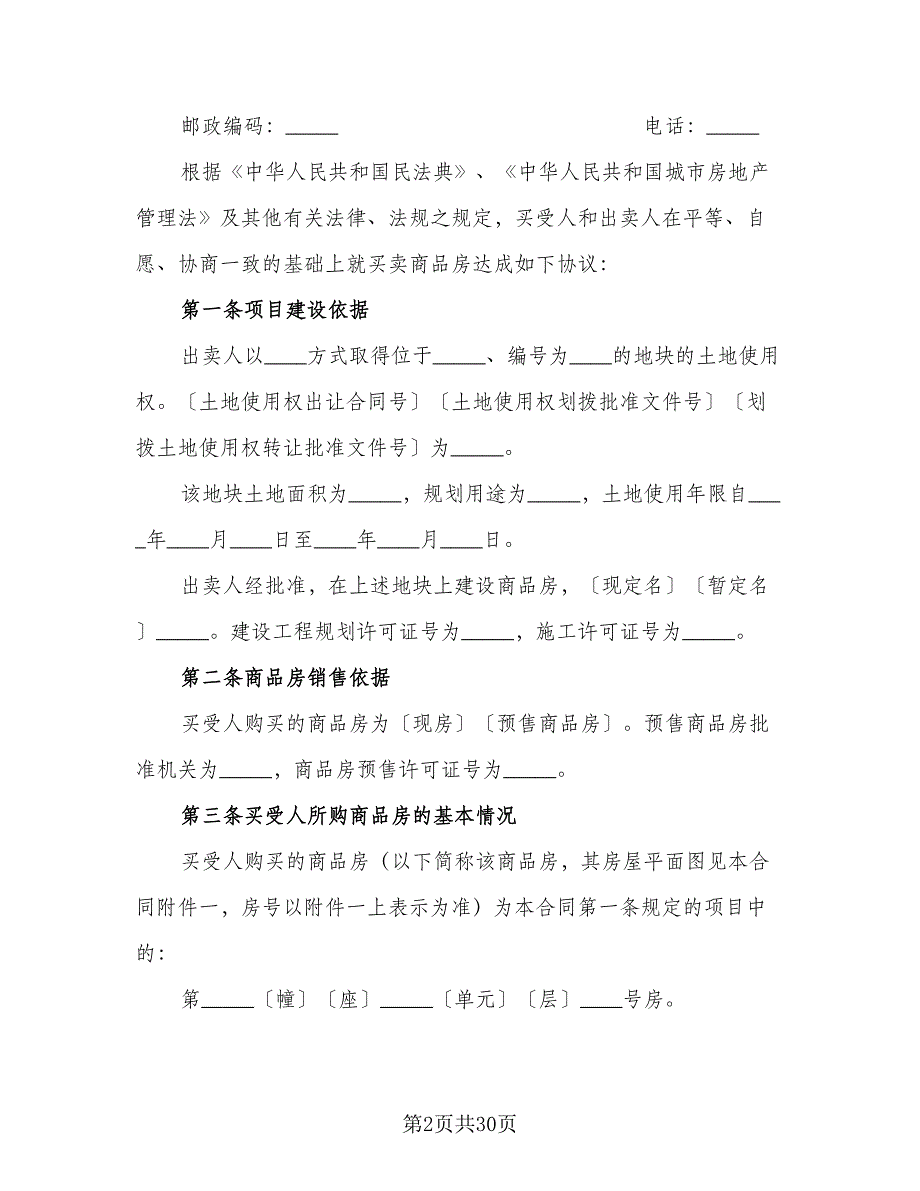 邮政编码：_____ 电话：_____
根据《中华人民共和国民法典》、《中华人民共和国城市房地产
管理法》及其他有关法律、法规之规定，买受人和出卖人在平等、自
愿、协商一致的基础上就买卖商品房达成如下协议：
第一条项目建设依据
出卖人以____方式取得位于_____、编号为____的地块的土地使用
权。〔土地使用权出让合同号〕〔土地使用权划拨批准文件号〕〔划
拨土地使用权转让批准文件号〕为_____。
该地块土地面积为_____，规划用途为_____，土地使用年限自___
_年____月____日至____年____月____日。
出卖人经批准，在上述地块上建设商品房，〔现定名〕〔暂定名
〕_____。建设工程规划许可证号为_____，施工许可证号为_____。
第二条商品房销售依据
买受人购买的商品房为〔现房〕〔预售商品房〕。预售商品房批
准机关为_____，商品房预售许可证号为_____。
第三条买受人所购商品房的基本情况
买受人购买的商品房（以下简称该商品房，其房屋平面图见本合
同附件一，房号以附件一上表示为准）为本合同第一条规定的项目中
的：
第_____〔幢〕〔座〕_____〔单元〕〔层〕____号房。
第2页共30页